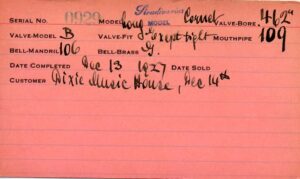 Stradivarius
SERIAL NO. 0929 MODEL Long MODEL Cornet VALVE-BORE. .462"
VALVE-MODEL B VALVE-FIT except triplt MOUTHPIPE 109
BELL-MANDRIL 106 BELL-BRASS G.
DATE COMPLETED Dec 13 1927 DATE SOLD
CUSTOMER Dixie Music House, Dec 14th